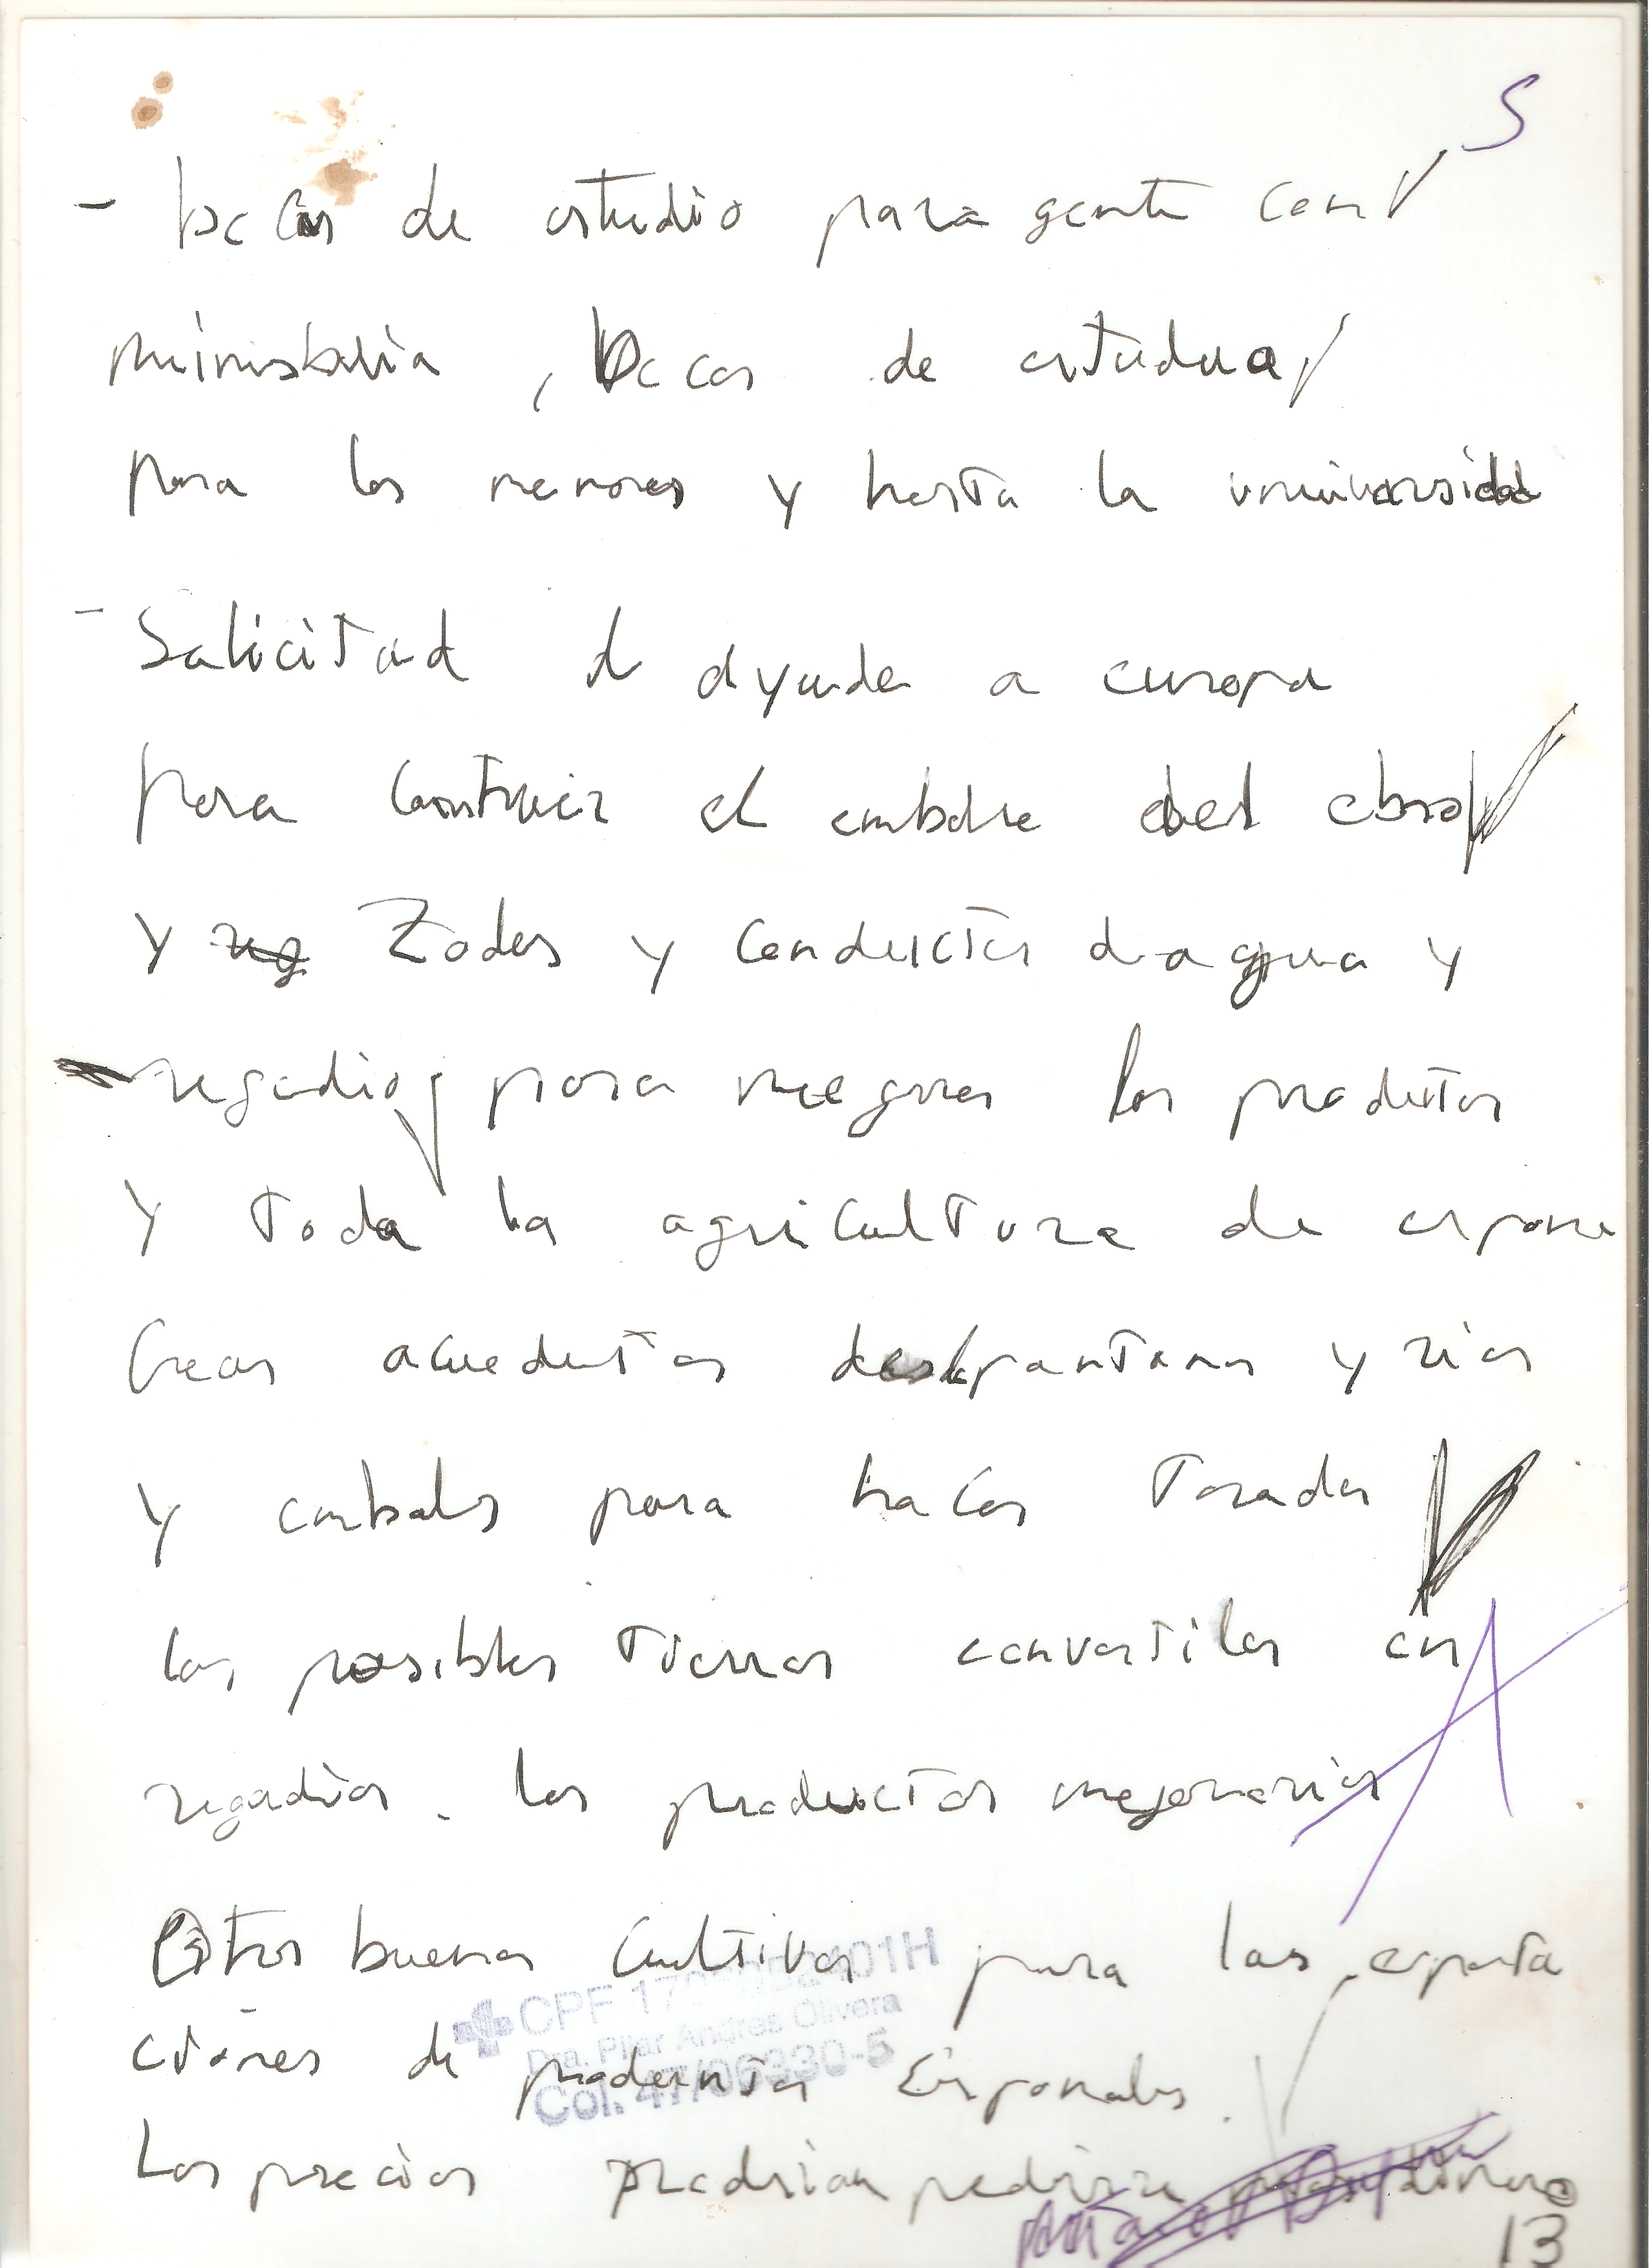 S
- becas de estudio para gente con
minusbalia, becas de estudua
para los menores y hasta la universidad
- Salicitud d ayuda a europa
para construir el embalse del ebro
y Zodos y conductos d agua y
regadio, para megores los produtos
y toda la agricultura de espana
Crear acuedutos des pantanos y rios
y embals para hacer toradas
las posibles tierras convertilas en
regadios. los productos mejorarias
Otros buenos cultivos para las exporta
ciones de productos Espanoles.
CPF 17 01H
Dra. Pilar Andres Olivera
Col. 47/06330-5
Los precios podrian pedirse mas dinero
13